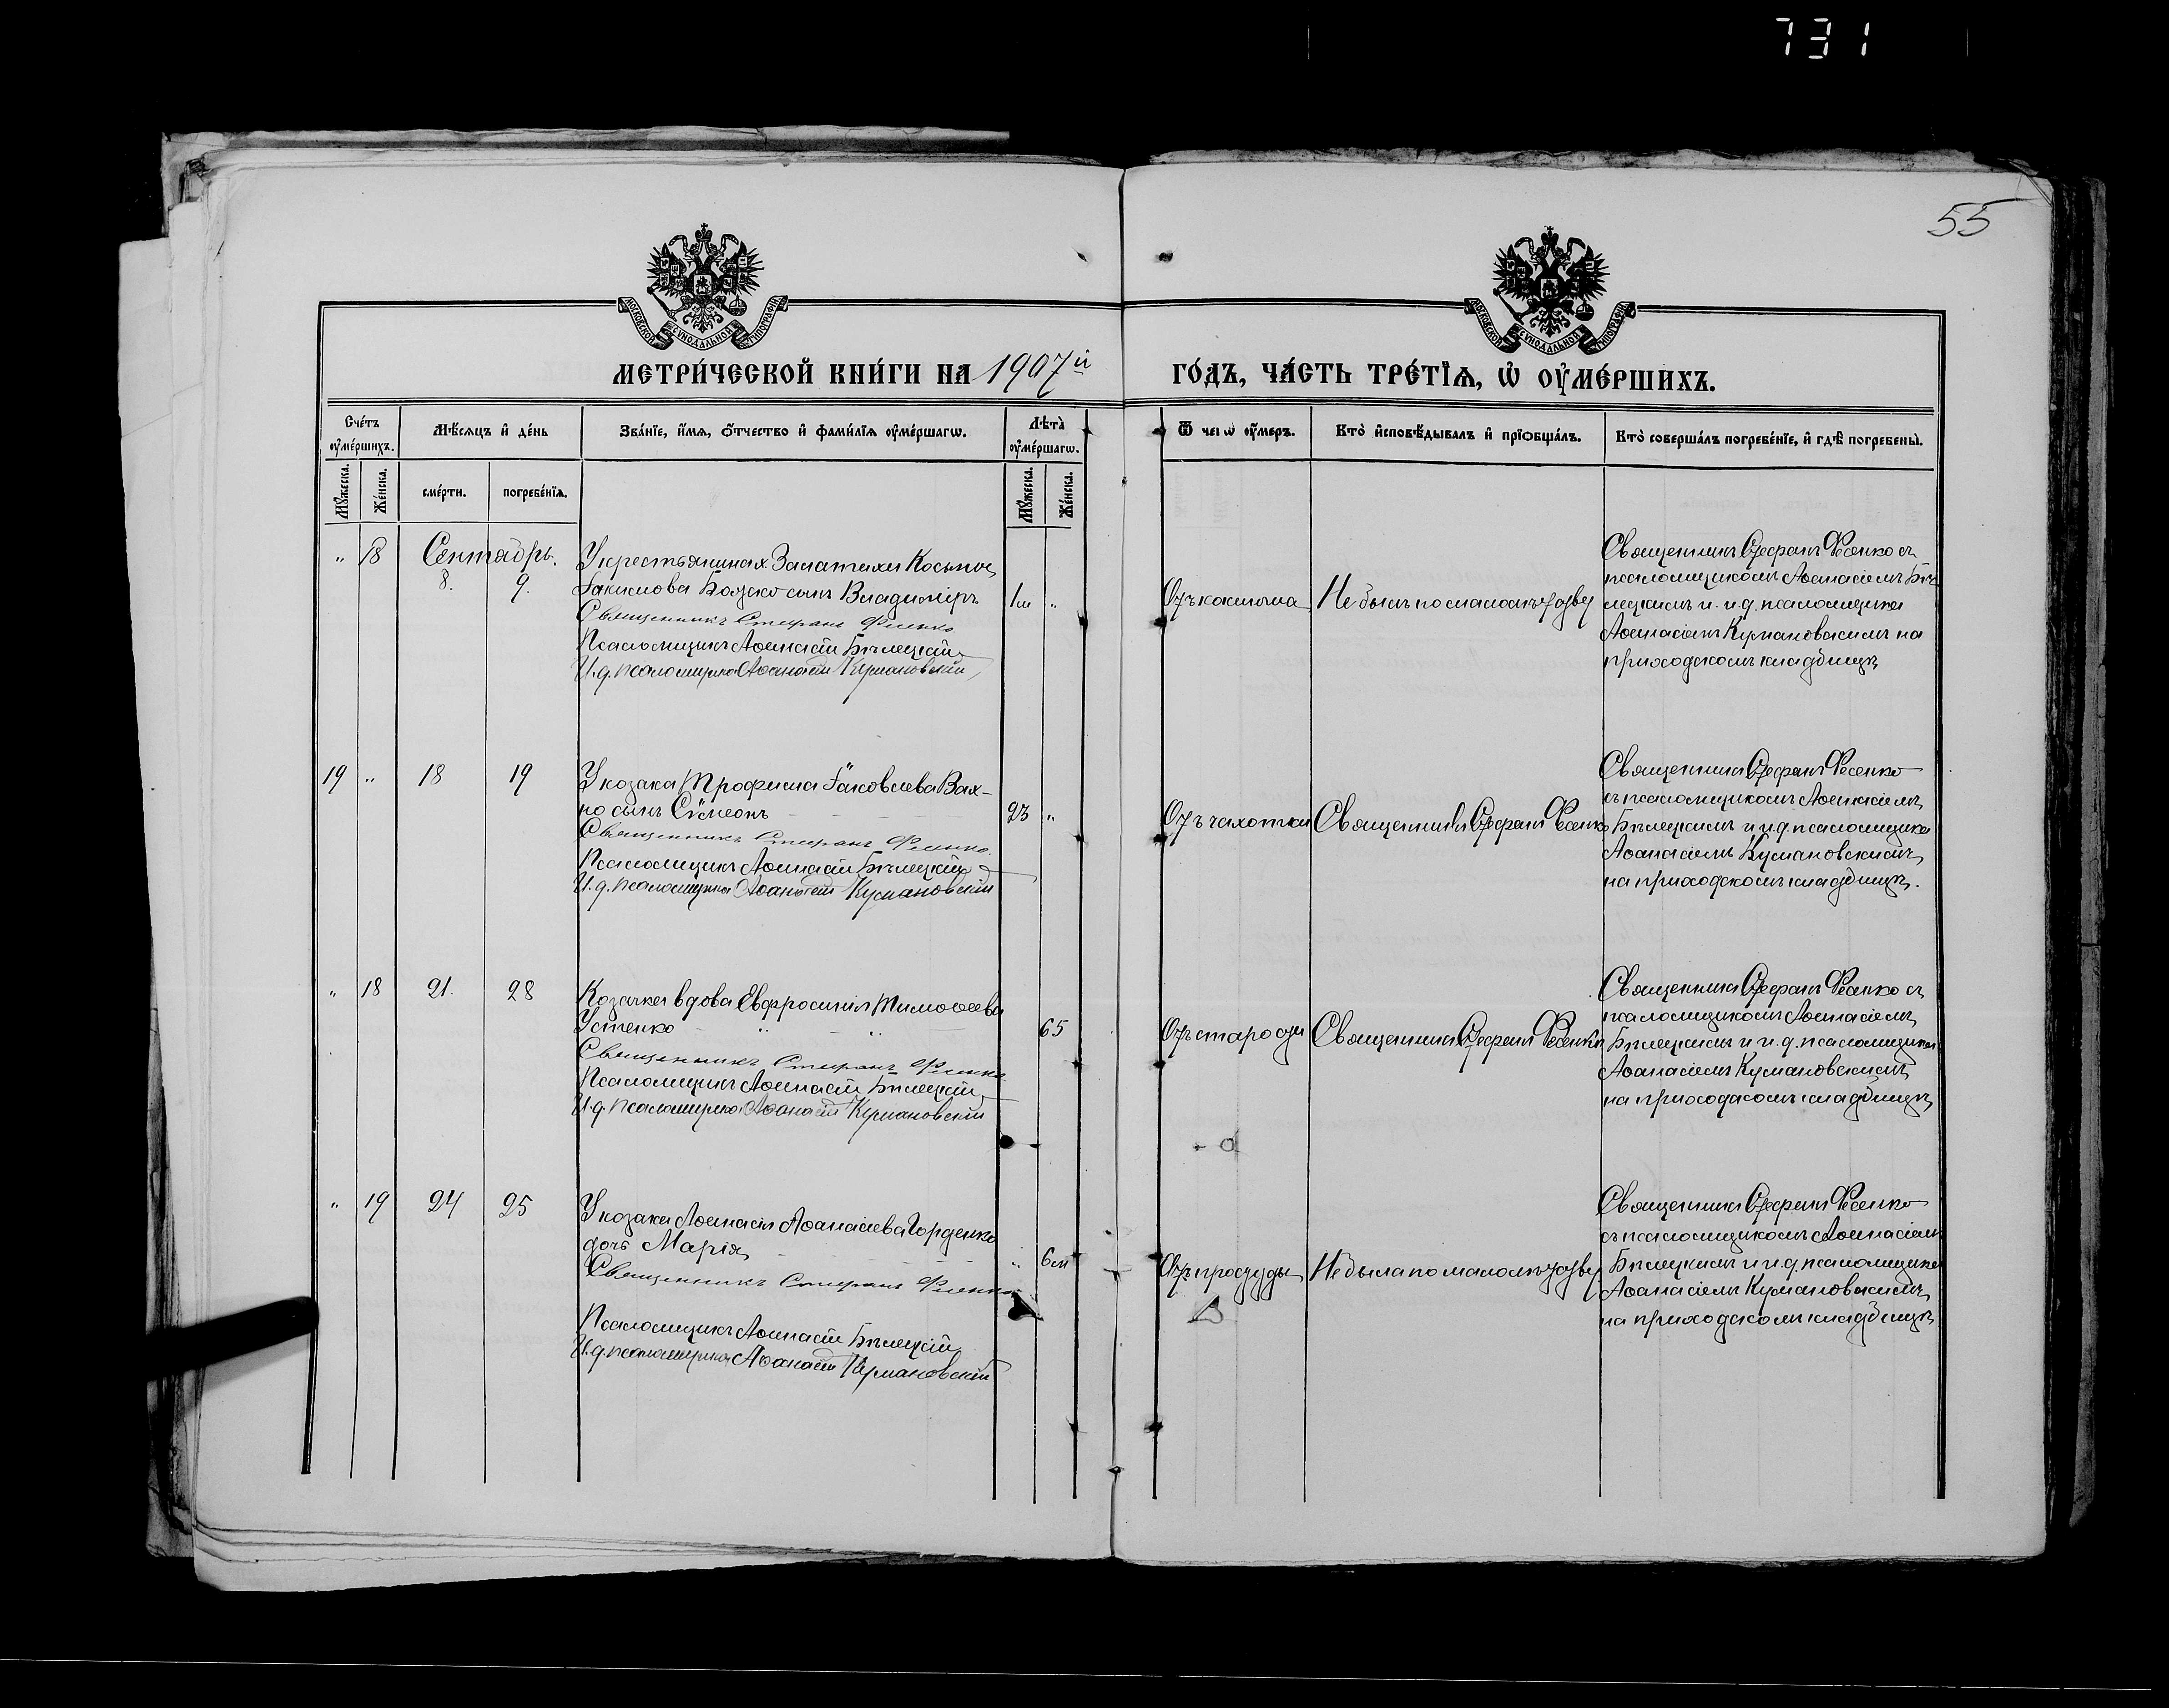 731
55
МОСКОВСКОЙ СѴНОДАЛЬНОЙ ТИПОГРАФІИ
МОСКОВСКОЙ СѴНОДАЛЬНОЙ ТИПОГРАФІИ
МЕТРИ́ЧЕСКОЙ КНИ́ГИ НА 1907й
ГО́ДЪ, ЧА́СТЬ ТРЕ́ТЇѦ, Ѡ҆ ОУ҆МЕ́РШИХЪ.
Сче́тъ оу҆ме́ршихъ.
Мꙋ́жеска.
Же́нска.
Мѣ́сяцъ и҆ де́нь
сме́рти.
погребе́нїѧ.
Зва́нїе, и҆́мѧ, ѻ҆́тчество и҆ фами́лїѧ оу҆ме́ршагѡ.
Лѣ́та̀ оу҆ме́ршагѡ.
Мꙋ́жеска.
Же́нска.
Ѿ чегѡ̀ оу҆́меръ.
Кто̀ и҆сповѣ́дывалъ и҆ прїѻбща́лъ.
Кто̀ соверша́лъ погребе́нїе, и҆ гдѣ̀ погребены̀.
" 18 Сентябрь.
8. 9.
У крестьянина х. Косьмы
Іакимова сынъ Владиміръ
Священникъ Стефанъ Фесенко
Псаломщикъ Аѳанасій Бѣлецкій
И.д. псаломщика Аѳанасій Кумановскій
1м "
Отъ коклюша
Не былъ по малолѣтству
Священникъ Стефанъ Фесенко съ
псаломщикомъ Аѳанасіемъ Бѣ-
лецкимъ и и.д. псаломщика
Аѳанасіемъ Кумановскимъ на
приходскомъ кладбищѣ
19 " 18 19
У козака Трофима Іаковлева Вах-
но сынъ Сѵмеонъ
Священникъ Стефанъ Фесенко.
Псаломщикъ Аѳанасій Бѣлецкій
И.д. псаломщика Аѳанасій Кумановскій
23 "
Отъ чахотки
Священникъ Стефанъ Фесенко
Священникъ Стефанъ Фесенко
съ псаломщикомъ Аѳанасіемъ
Бѣлецкимъ и и.д. псаломщика
Аѳанасіемъ Кумановскимъ
на приходскомъ кладбищѣ.
" 18 21. 28
Козачка вдова Евфросинія Тимоѳеева
Устенко
Священникъ Стефанъ Фесенко
Псаломщикъ Аѳанасій Бѣлецкій
И.д. псаломщика Аѳанасій Кумановскій
65
Отъ старости
Священникъ Стефанъ Фесенко
Священникъ Стефанъ Фесенко съ
псаломщикомъ Аѳанасіемъ
Бѣлецкимъ и и.д. псаломщика
Аѳанасіемъ Кумановскимъ
на приходскомъ кладбищѣ
" 19 24 25
У козака Аѳанасія Аѳанасіева Горденко
дочь Марія
Священникъ Стефанъ Фесенко
Псаломщикъ Аѳанасій Бѣлецкій
И.д. псаломщика Аѳанасій Кумановскій
" 6м
Отъ простуды
Не была по малолѣтству
Священникъ Стефанъ Фесенко
съ псаломщикомъ Аѳанасіемъ
Бѣлецкимъ и и.д. псаломщика
Аѳанасіемъ Кумановскимъ
на приходскомъ кладбищѣ